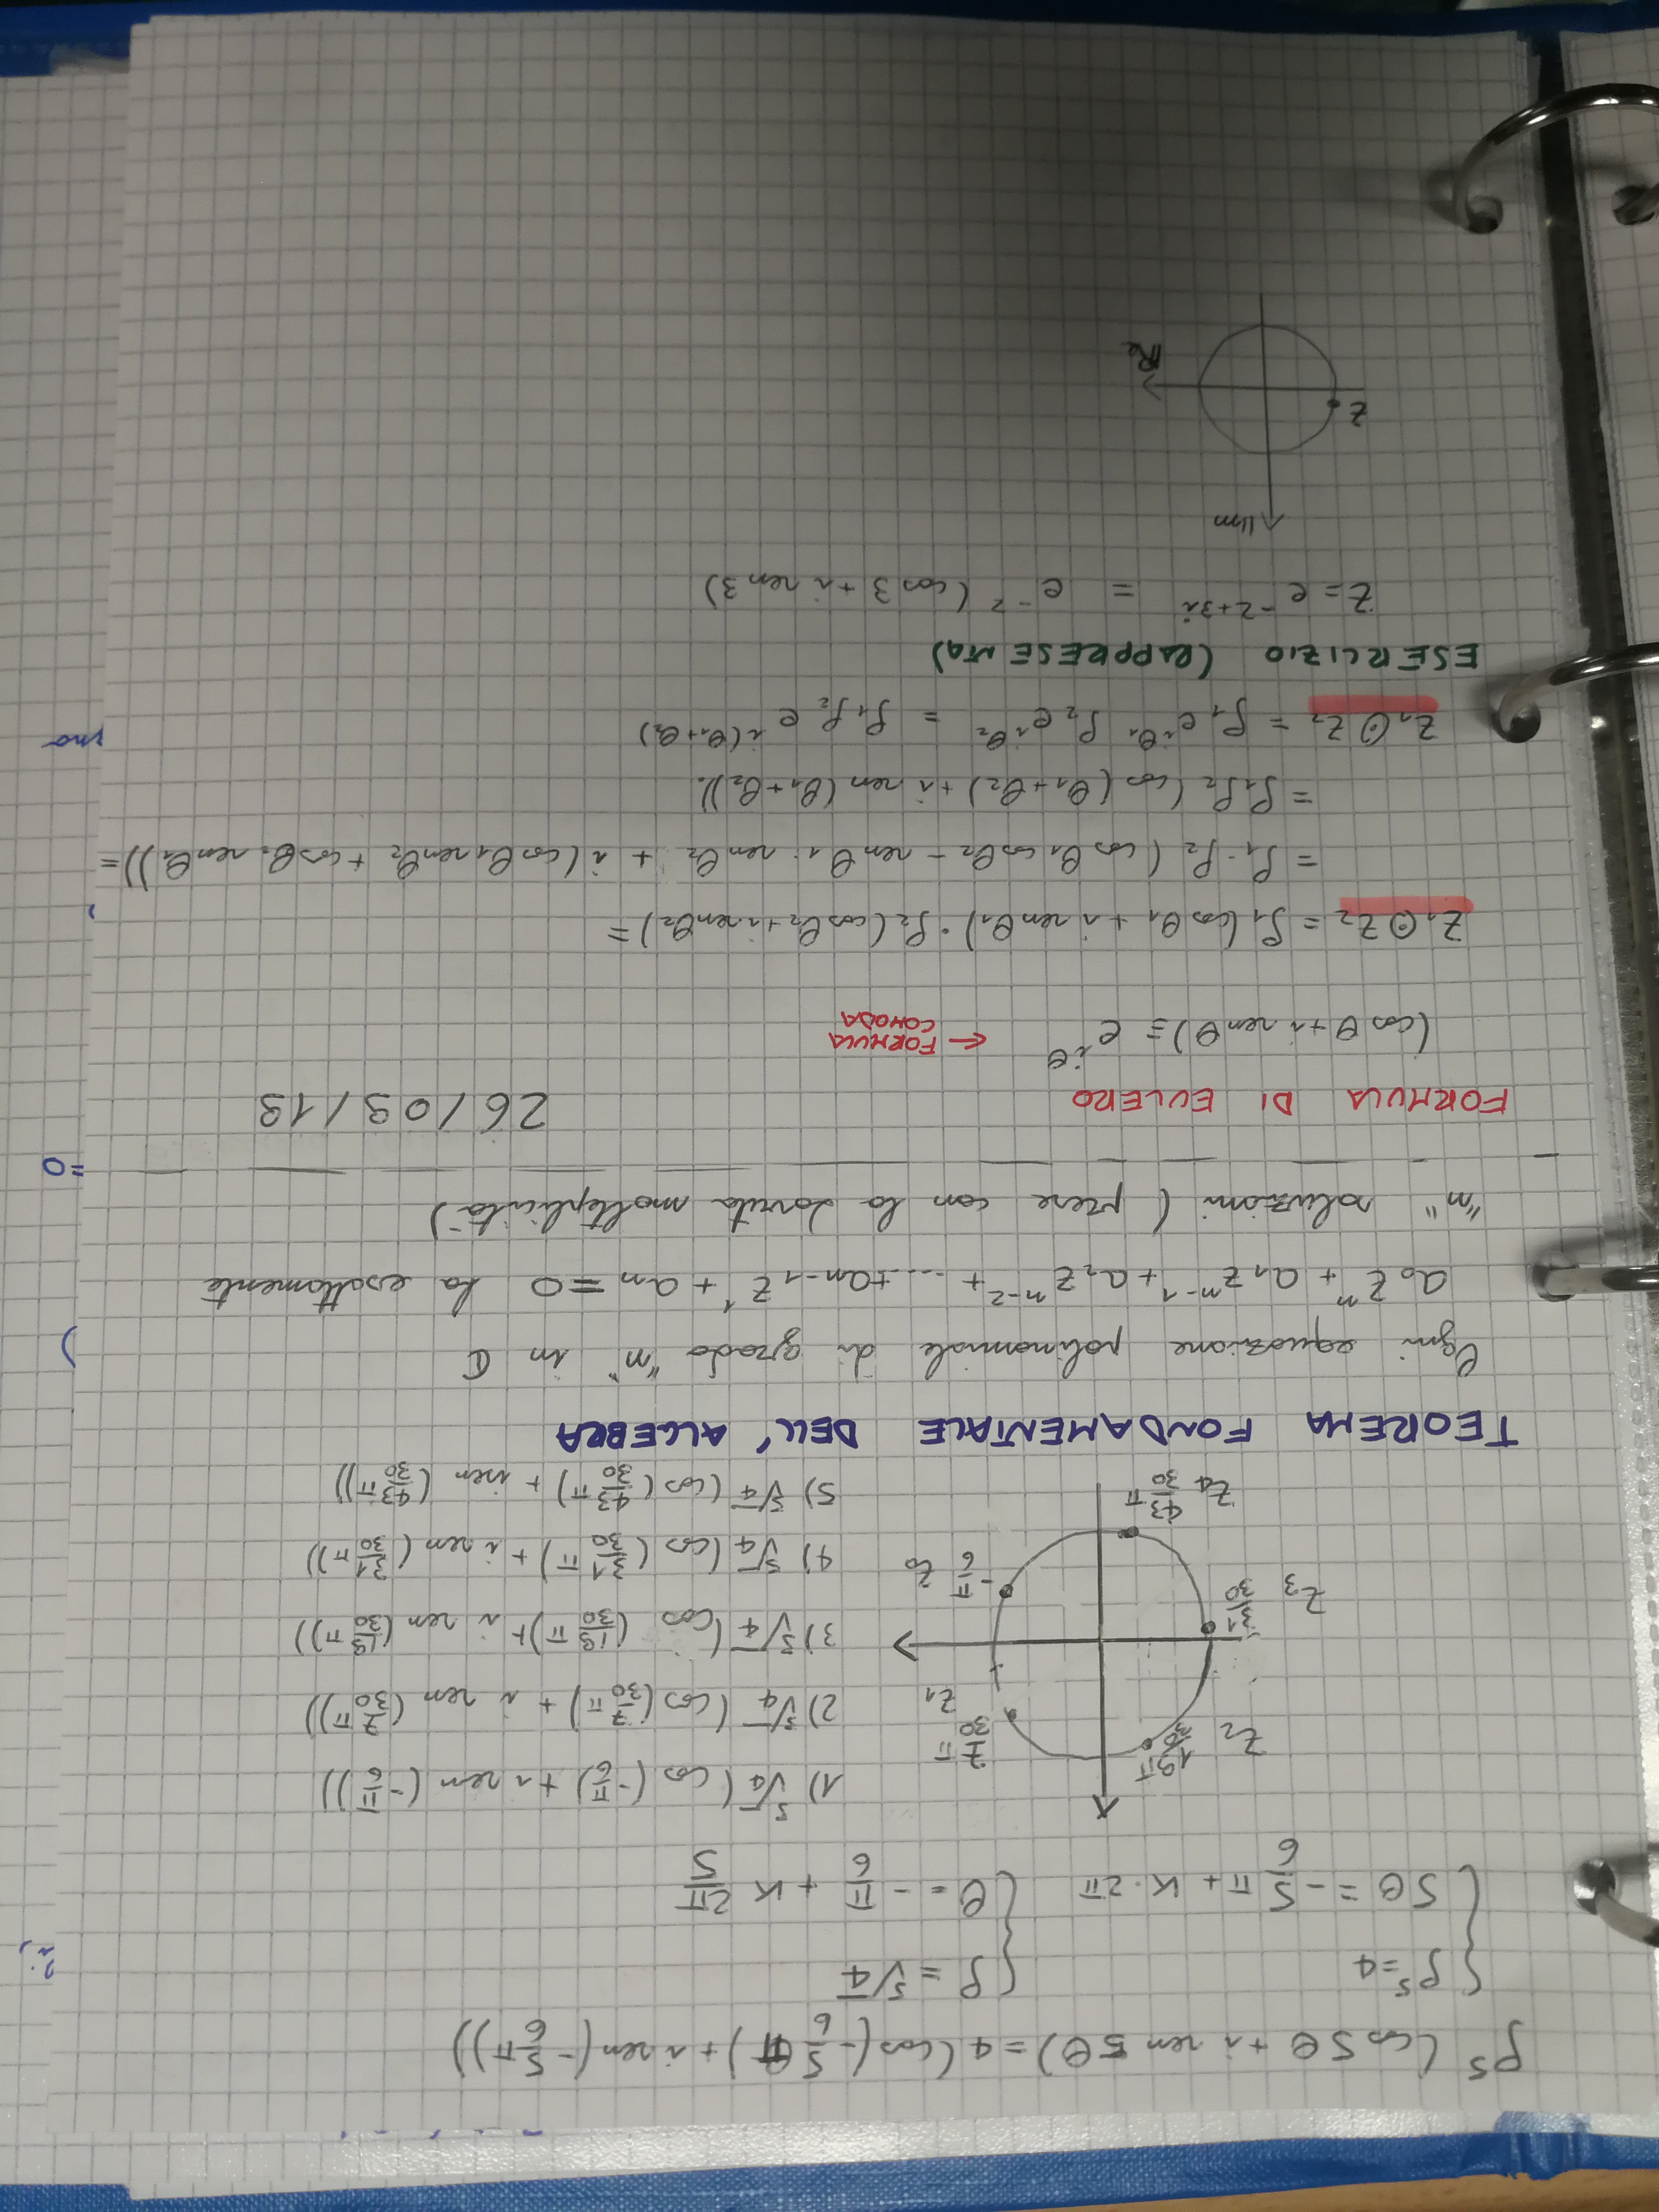 ρ⁵ (cos 5θ + i sen 5θ) = 4 (cos(-5/6 π) + i sen(-5/6 π))
{ ρ⁵ = 4 { ρ = ⁵√4
5θ = -5/6 π + K · 2π θ = -π/6 + K 2π/5
1) ⁵√4 (cos (-π/6) + i sen (-π/6))
Z₂ 19/30 π 7/30 π Z₁
2) ⁵√4 (cos(7/30 π) + i sen (7/30 π))
3) ⁵√4 (cos (19/30 π) + i sen (19/30 π))
Z₃ 31/30 -π/6 Z₀
4) ⁵√4 (cos (31/30 π) + i sen (31/30 π))
Z₄ 43/30 π
5) ⁵√4 (cos (43/30 π) + i sen (43/30 π))
TEOREMA FONDAMENTALE DELL' ALGEBRA
Ogni equazione polinomiale di grado "n" in ℂ
a₀ zⁿ + a₁ zⁿ⁻¹ + a₂ zⁿ⁻² + ..... + aₙ₋₁ z¹ + aₙ = 0 ha esattamente
"n" soluzioni ( prese con la dovuta molteplicità )
=0
FORMULA DI EULERO 26/09/19
(cos θ + i sen θ) = e^{iθ} ← FORMULA
COMODA
Z₁ ⊙ Z₂ = ρ₁ (cos θ₁ + i sen θ₁) · ρ₂ (cos θ₂ + i sen θ₂) =
= ρ₁ · ρ₂ ( cos θ₁ cos θ₂ - sen θ₁ · sen θ₂ + i (cos θ₁ sen θ₂ + cos θ₂ sen θ₁)) =
= ρ₁ρ₂ (cos (θ₁ + θ₂) + i sen (θ₁ + θ₂)).
Z₁ ⊙ Z₂ = ρ₁ e^{iθ₁} ρ₂ e^{iθ₂} = ρ₁ ρ₂ e^{i(θ₁+θ₂)}
ESERCIZIO (RAPPRESENTA)
Z = e^{-2+3i} = e^{-2} (cos 3 + i sen 3)
Im
Z
Re